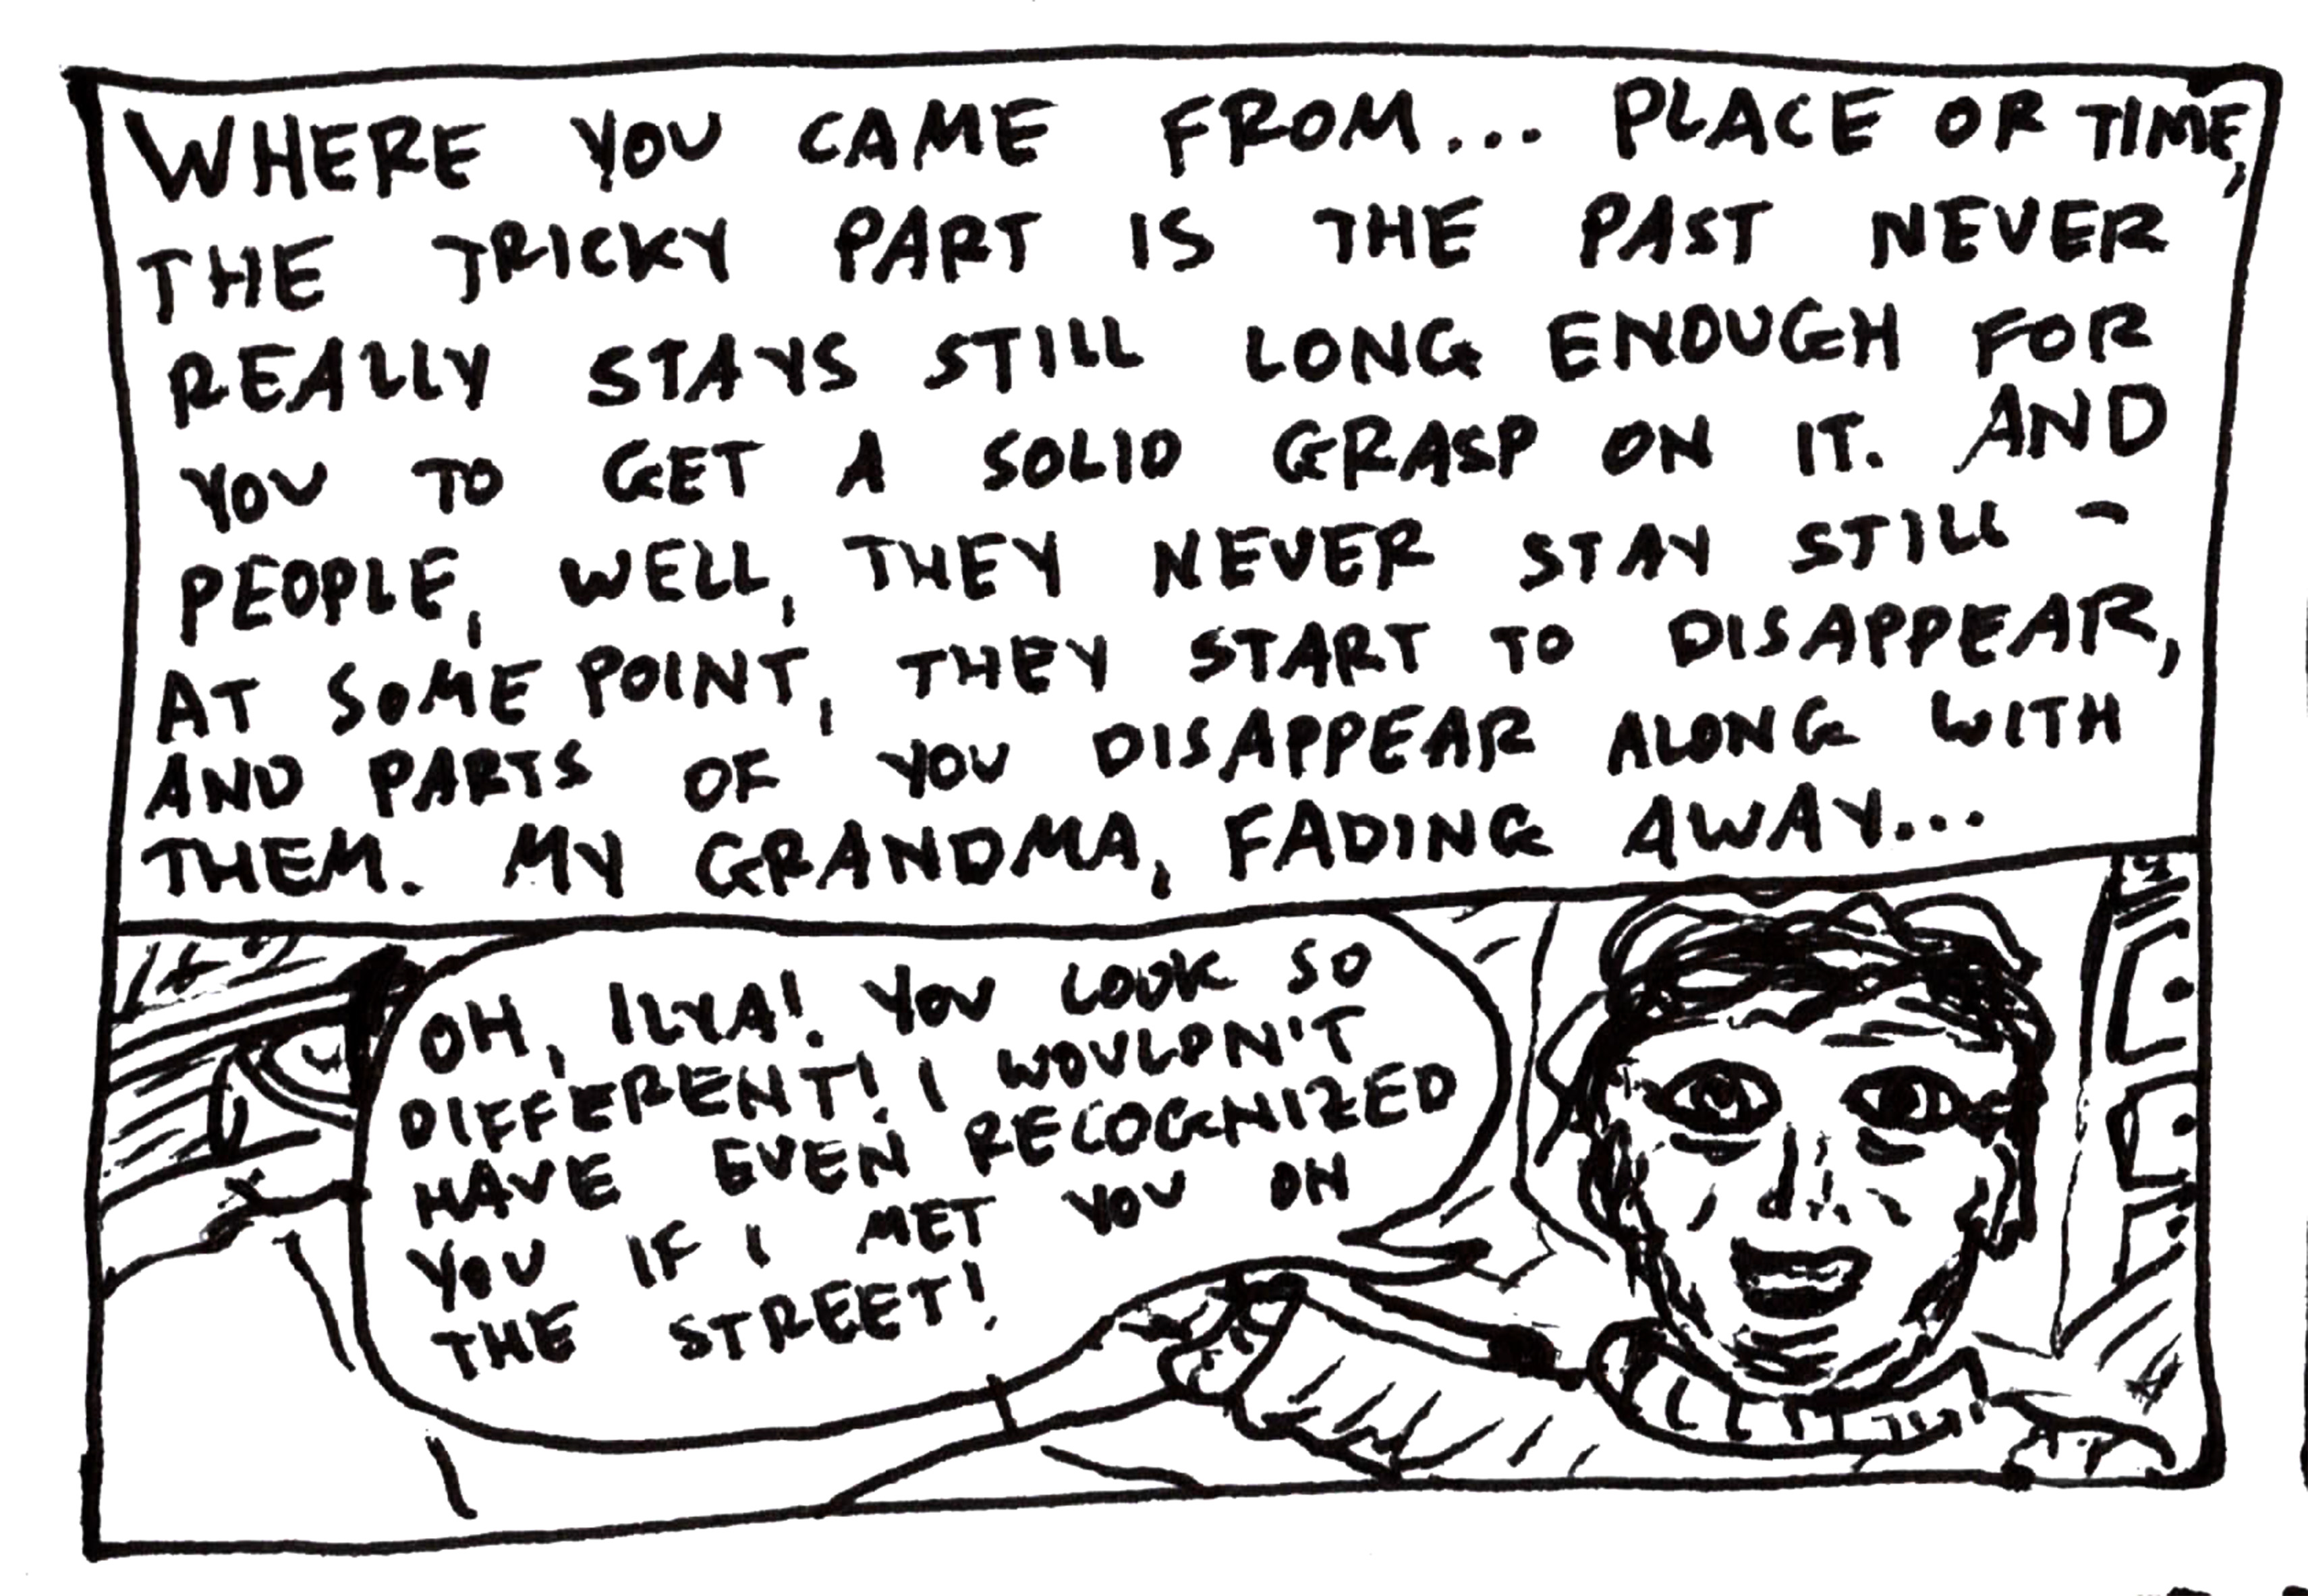 WHERE YOU CAME FROM... PLACE OR TIME,
THE TRICKY PART IS THE PAST NEVER
REALLY STAYS STILL LONG ENOUGH FOR
YOU TO GET A SOLID GRASP ON IT. AND
PEOPLE, WELL, THEY NEVER STAY STILL -
AT SOME POINT, THEY START TO DISAPPEAR,
AND PARTS OF YOU DISAPPEAR ALONG WITH
THEM. MY GRANDMA, FADING AWAY...
OH, ILYA! YOU LOOK SO
DIFFERENT! I WOULDN'T
HAVE EVEN RECOGNIZED
YOU IF I MET YOU ON
THE STREET!